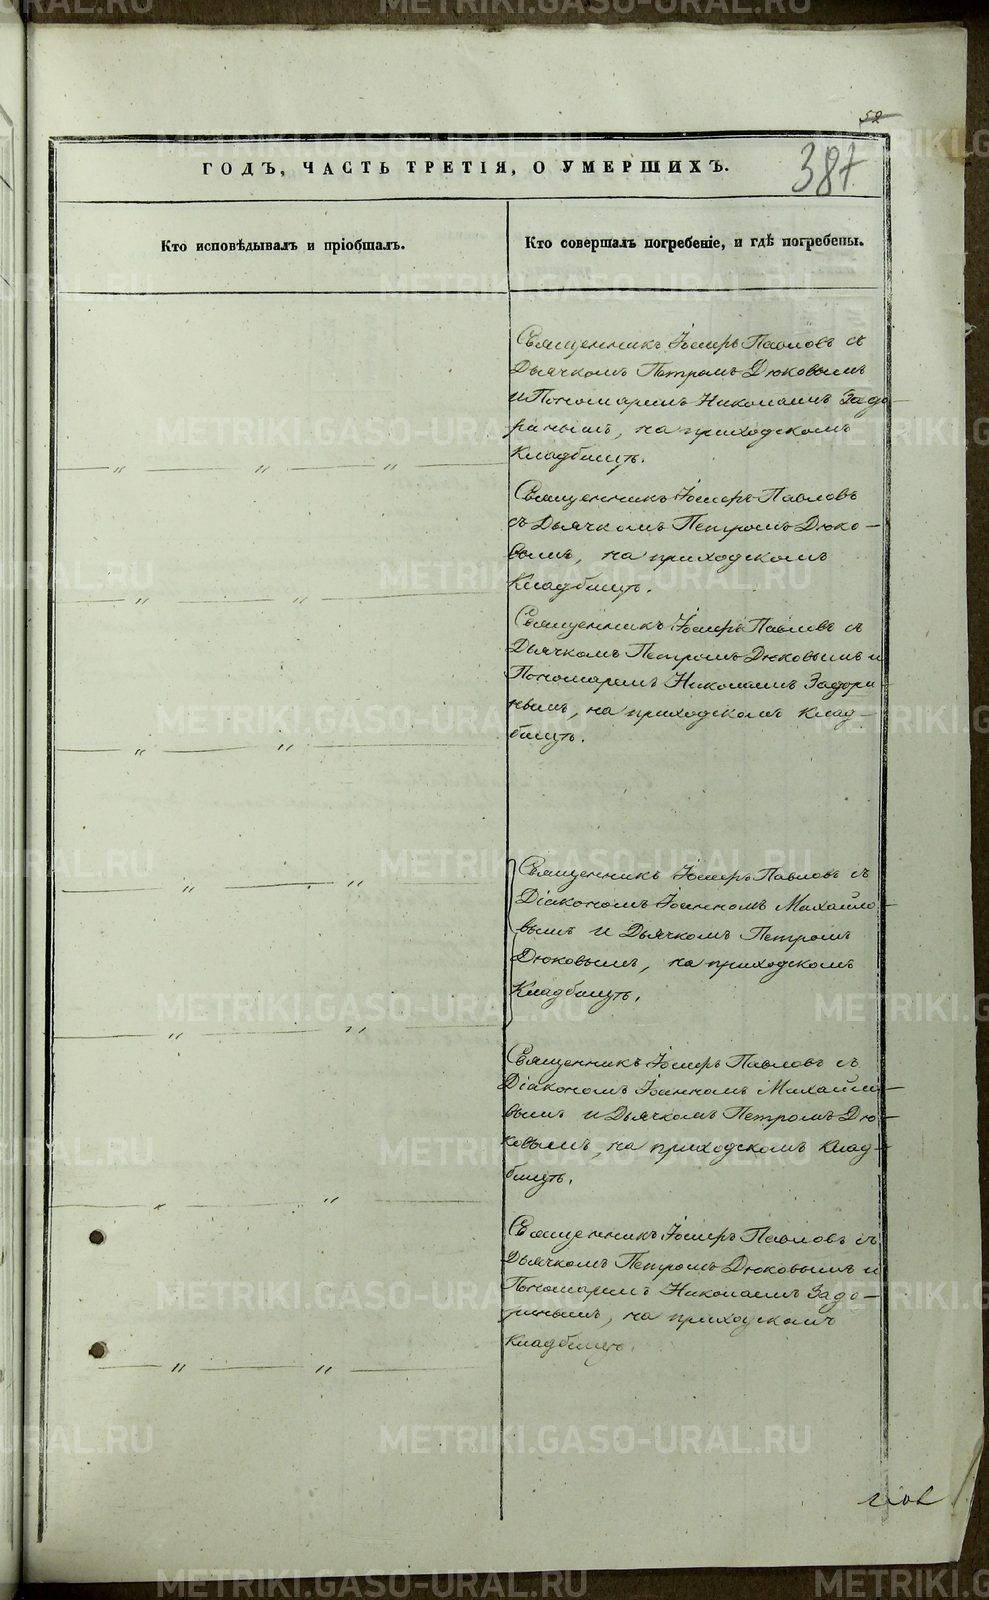 52
387
ГОДЪ, ЧАСТЬ ТРЕТІЯ, О УМЕРШИХЪ.
Кто исповѣдывалъ и пріобщалъ.
Кто совершалъ погребеніе, и гдѣ погребены.
Священникъ Іосифъ Павловъ съ
Дьячкомъ Петромъ Дюковымъ
и Пономаремъ Николаемъ Задо-
ринымъ, на приходскомъ
Кладбищѣ.
Священникъ Іосифъ Павловъ
съ Дьячкомъ Петромъ Дюко-
вымъ, на приходскомъ
Кладбищѣ.
Священникъ Іосифъ Павловъ съ
Дьячкомъ Петромъ Дюковымъ и
Пономаремъ Николаемъ Задори-
нымъ, на приходскомъ клад-
бищѣ.
Священникъ Іосифъ Павловъ съ
Діакономъ Іоанномъ Михайло-
вымъ и Дьячкомъ Петромъ
Дюковымъ, на приходскомъ
Кладбищѣ.
Священникъ Іосифъ Павловъ съ
Діакономъ Іоанномъ Михайло-
вымъ и Дьячкомъ Петромъ Дю-
ковымъ, на приходскомъ клад-
бищѣ.
Священникъ Іосифъ Павловъ съ
Дьячкомъ Петромъ Дюковымъ и
Пономаремъ Николаемъ Задо-
ринымъ, на приходскомъ
Кладбищѣ.
METRIKI.GASO-URAL.RU